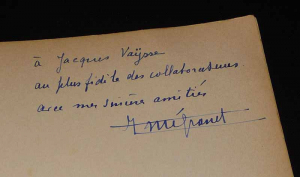 à Jacques Vaÿsse
au plus fidèle des collaborateurs
avec mes sincères amitiés
Mégranet